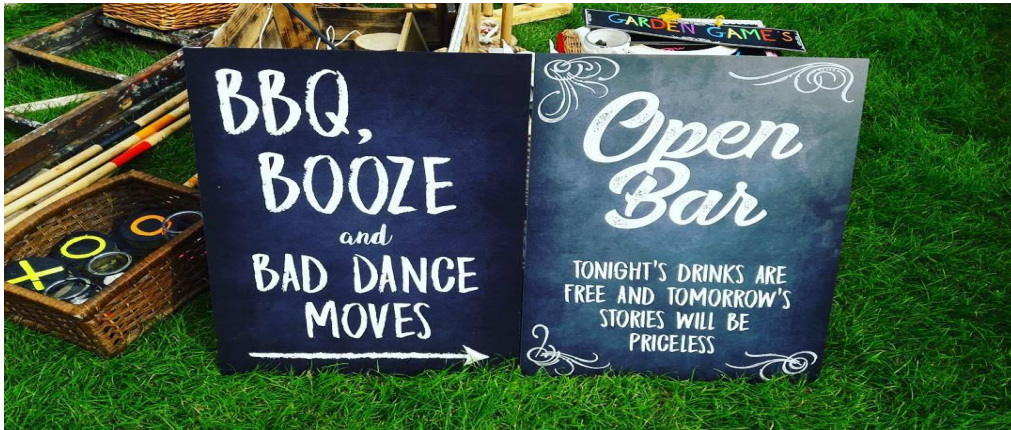 GARDEN GAME'S
BBQ,
BOOZE
and
BAD DANCE
MOVES
Open
Bar
TONIGHT'S DRINKS ARE
FREE AND TOMORROW'S
STORIES WILL BE
PRICELESS
X
O
O